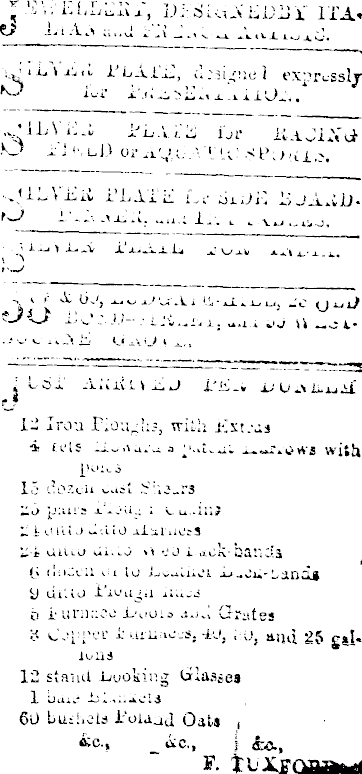 JEWELLERY, DESIGNED BY ITA-
LIAN and FRENCH ARTISTS.
SILVER PLATE, designed expressly
for PRESENTATION.
SILVER PLATE for RACING
FIELD or AQUATIC SPORTS.
SILVER PLATE for SIDE BOARD-
DINNER, and TEA TABLES.
SILVER PLATE FOR INDIA.
& 60, LUDGATE-HILL, 25 OLD
BOND-STREET, and WEST-
BOURNE GROVE.
JUST ARRIVED PER DUNHLM
12 Iron Ploughs, with Extras
4 sets Howard's patent Harrows with
poles
15 dozen cast Shears
25 pairs Plough Chains
24 ditto ditto Harness
24 ditto ditto Web Back-bands
6 dozen ditto Leather Back-bands
9 ditto Plough lines
5 Furnace Doors and Grates
3 Copper Furnaces, 40, 30, and 25 gal-
lons
12 stand Looking Glasses
1 bale Blankets
60 bushels Poland Oats
&c., &c., &c.,
F. TUXFORD